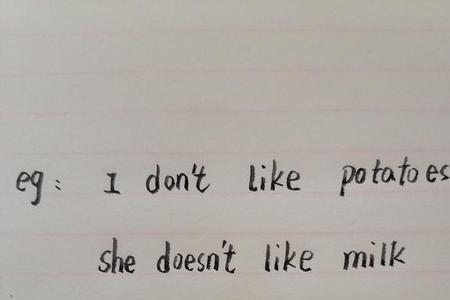 eg: I don't like potatoes
she doesn't like milk